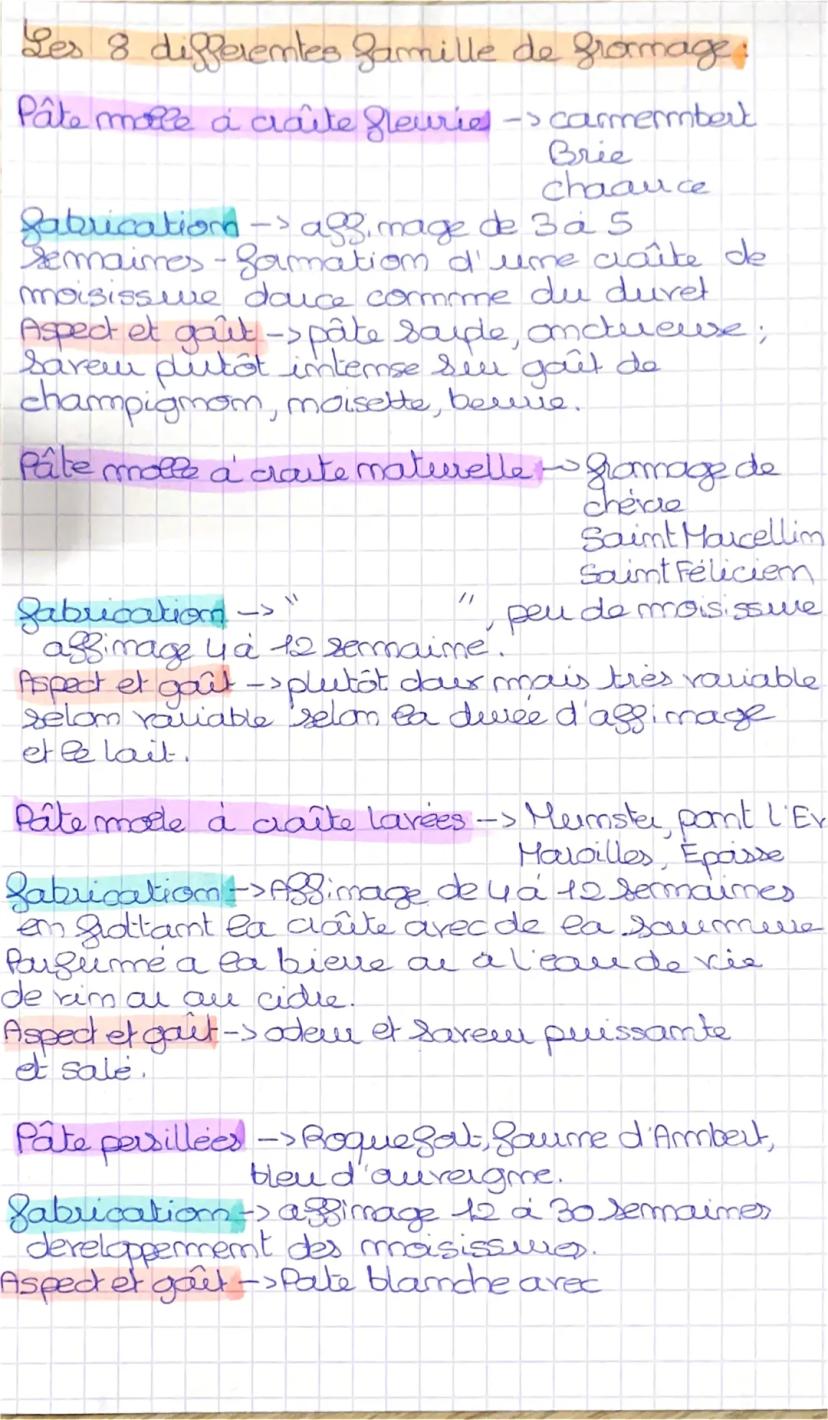 Les 8 differentes famille de fromage :
Pâte molle à croûte fleurie -> camembert
Brie
chaource
fabrication -> affinage de 3 à 5
semaines - formation d'une croûte de
moisissure douce comme du duvet
Aspect et goût -> pâte souple, onctueuse ;
saveur plutôt intense sur goût de
champignon, noisette, beurre.
Pâte molle à croute naturelle -> fromage de
chévre
Saint Marcellin
Saint Félicien
fabrication -> " ", peu de moisissure
affinage 4 à 12 semaine.
Aspect et goût -> plutôt doux mais très variable
selon variable selon la durée d'affinage
et le lait.
Pâte molle à croûte lavées -> Munster, pont l'Ev
Maroilles, Époisse
fabrication -> Affinage de 4 à 12 semaines
en frottant la croûte avec de la saumure
Parfumé a la bierre ou a l'eau de vie
de vin ou au cidre.
Aspect et goût -> odeur et saveur puissante
et salé.
Pâte persillées -> Roquefort, fourme d'Ambert,
bleu d'auvergne.
fabrication -> affinage 12 à 30 semaines
developpement des moisissures.
Aspect et goût -> Pate blanche avec